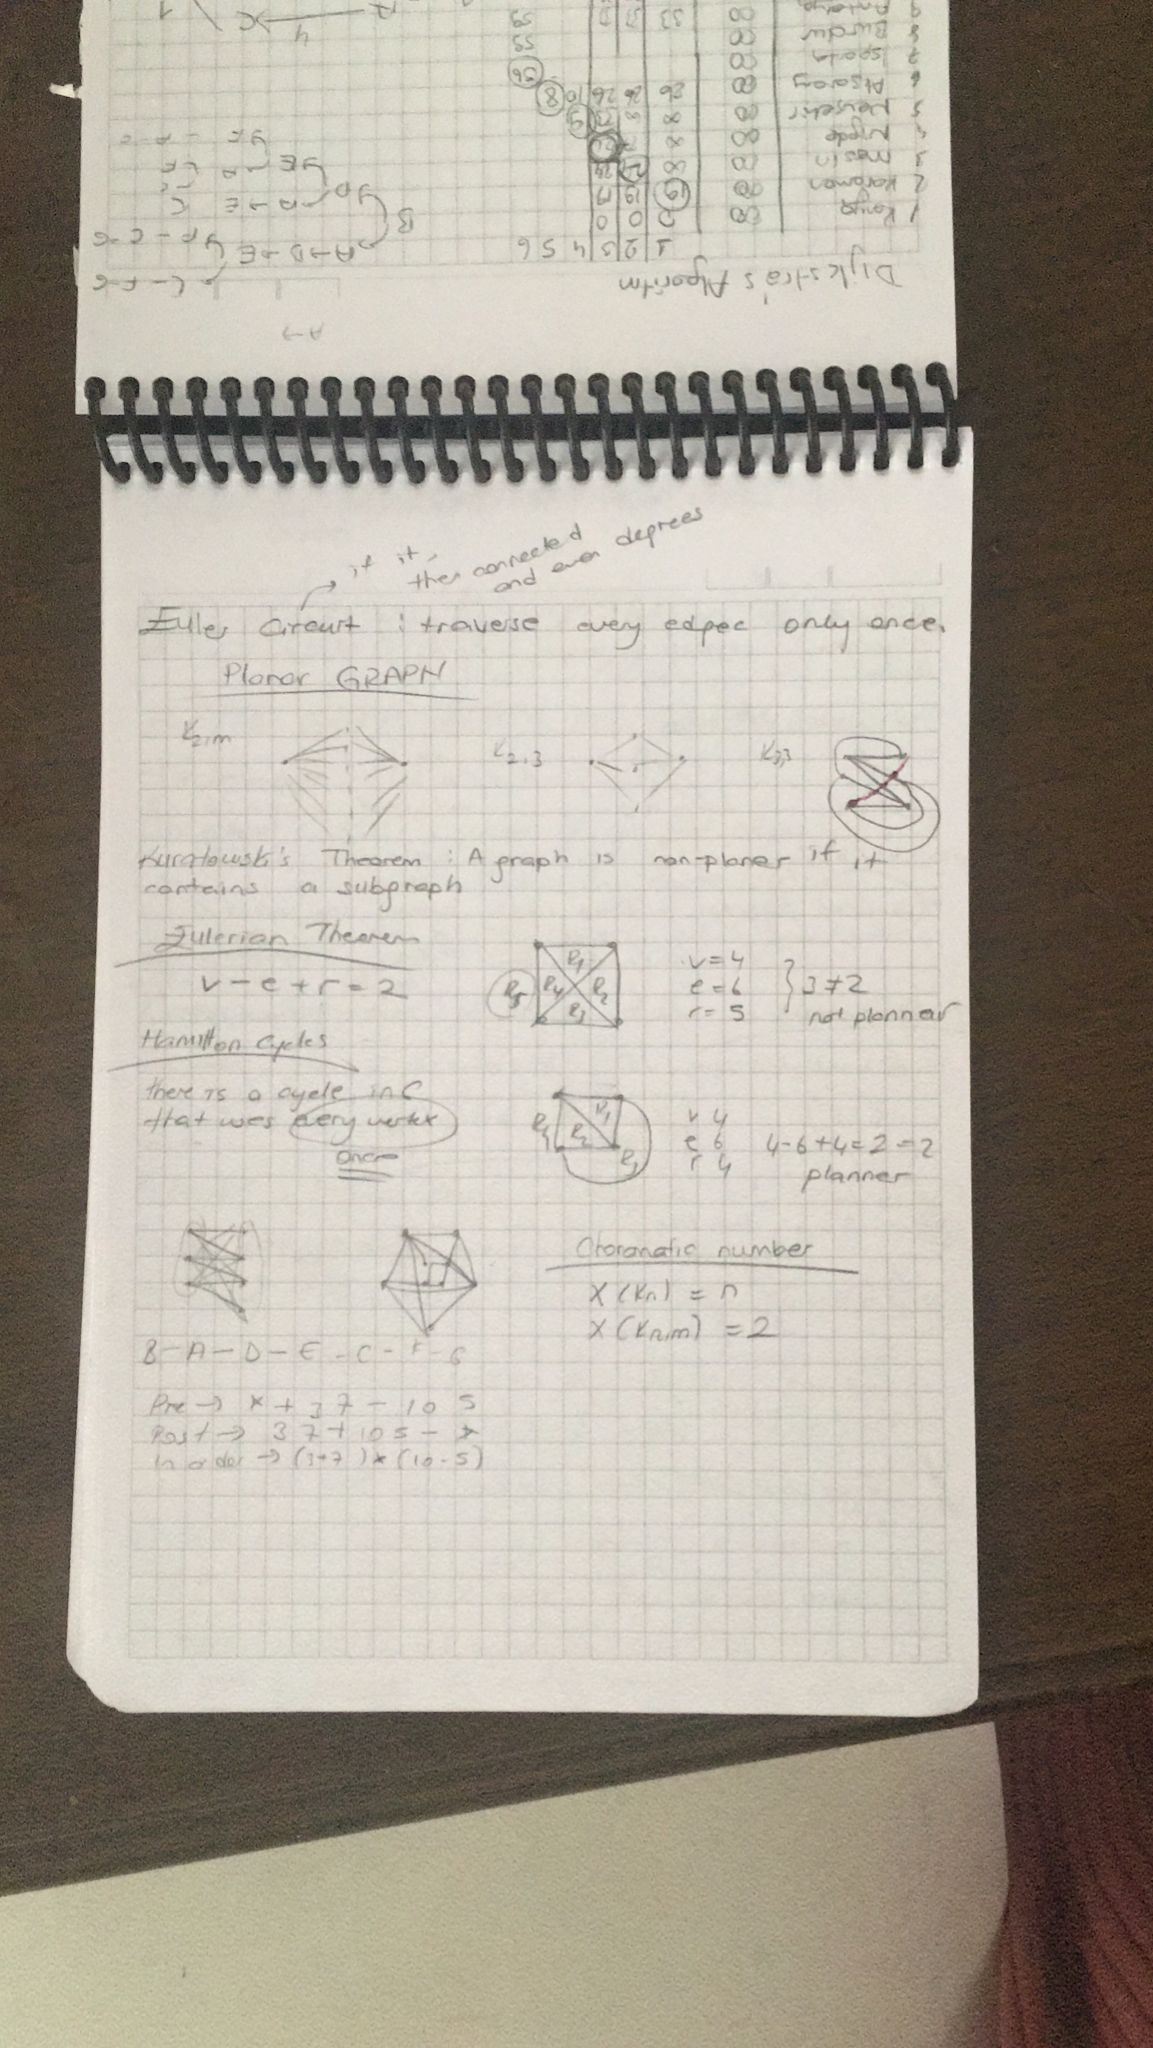 Dijkstra's Algoritm
1 2 3 4 5 6
1 Konya ∞ 0 0 0
2 Karaman ∞
Mersin ∞ 8
Nigde ∞ 8
Nevsehir ∞ 8
6 Aksaray ∞ 26 26 26 10 8
7 Isparta ∞
8 Burdur ∞
if it,
then connected
and even degrees
Euler Circuit : traverse every edpec only once.
Planar GRAPH
K2,m K2,3 K3,3
Kuratowski's Theorem : A graph is non-planer if it
contains a subgraph
Eulerian Theorem
v - e + r = 2
R1 R2 R3 R4 R5
v = 4
e = 6
r = 5
3 ≠ 2
not planner
Hamilton Cycles
there is a cycle in C
that uses every vertex
once
R1 R2 R3 R4
v 4
e 6
r 4
4-6+4=2=2
planner
number
X (Kn) = n
X (Kn,m) = 2
B-A-D-E-C-F-G
Pre → * + 3 7 - 10 5
Post → 3 7 + 10 5 - *
In order → (3+7) * (10-5)